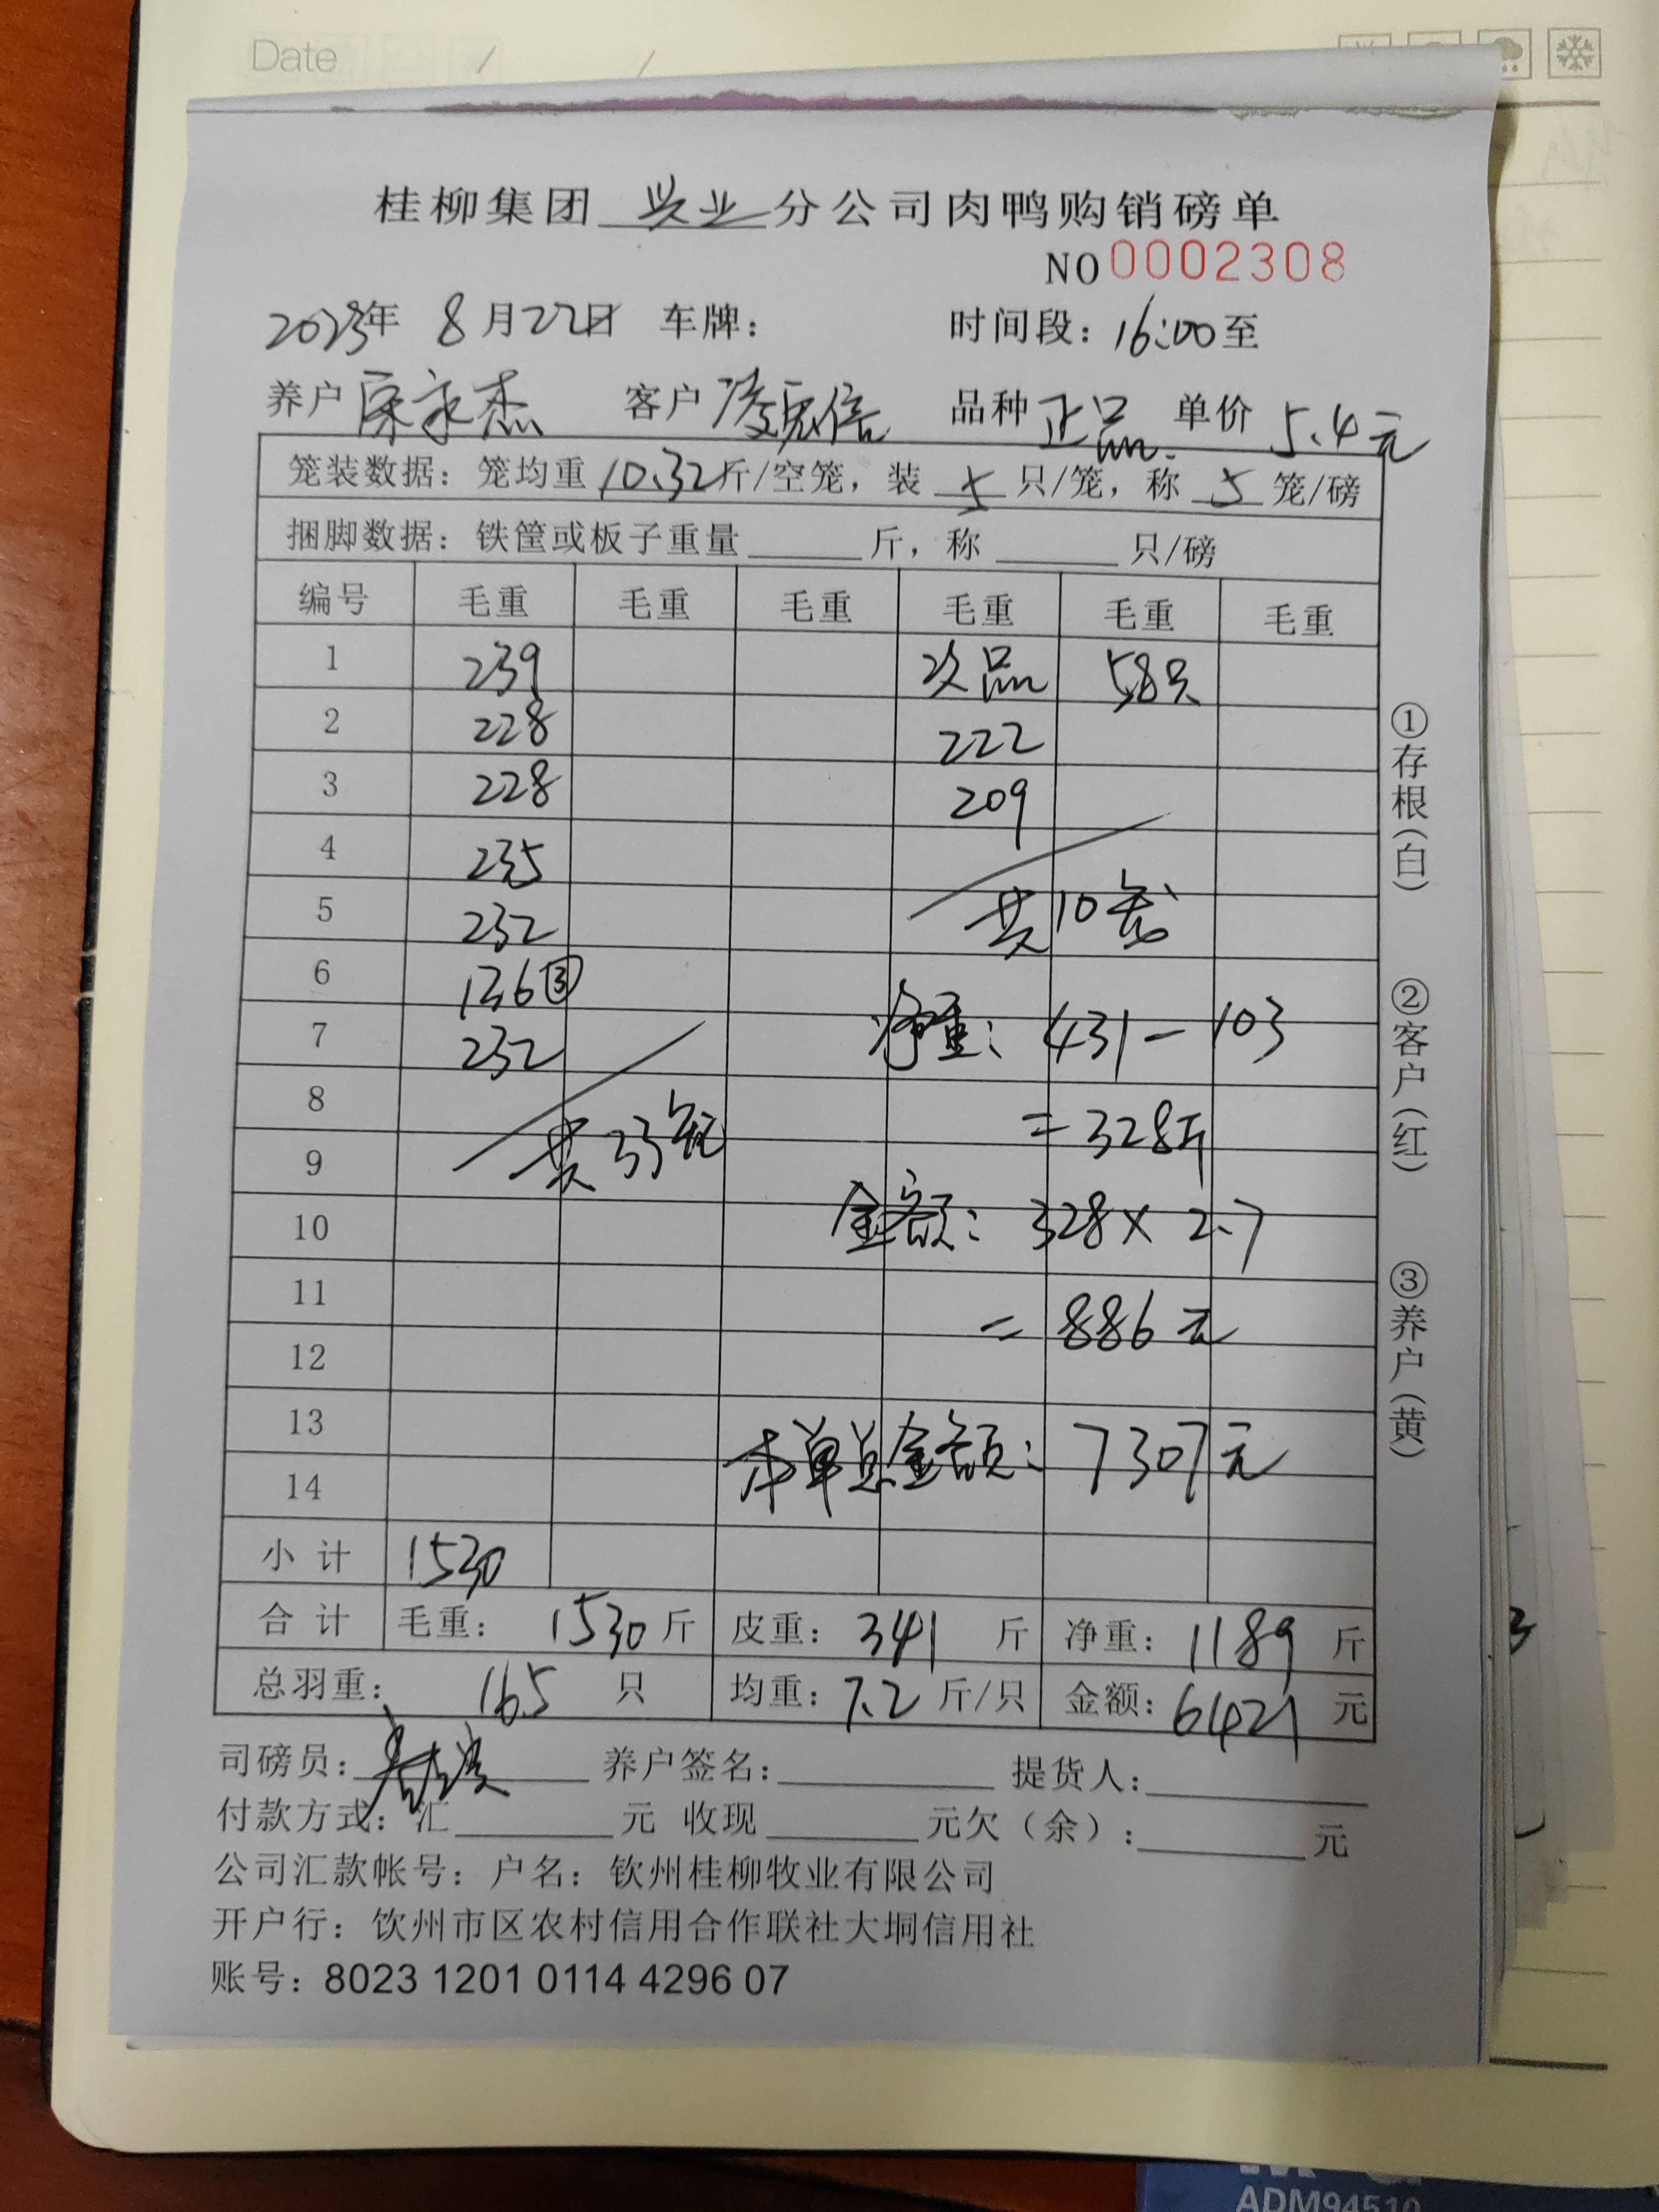 Date / /
桂柳集团 兴业 分公司肉鸭购销磅单
NO 0002308
2023年 8月22日 车牌： 时间段：16:00至
养户 客户 品种 正品 单价 5.4元
笼装数据：笼均重 10.32斤/空笼，装 5 只/笼，称 5 笼/磅
捆脚数据：铁筐或板子重量 斤，称 只/磅
编号 毛重 毛重 毛重 毛重 毛重 毛重
1 239 次品 58只
2 228 222
3 228 209
4 235
5 232 共10笼
6 136③
7 232 净重：431-103
8 =328斤
9 共33笼
10 金额：328×2.7
11 =886元
12
13 本单总金额：7307元
14
小计 1530
合计 毛重：1530斤 皮重：341斤 净重：1189斤
总羽重：165只 均重：7.2斤/只 金额：6421元
司磅员： 养户签名： 提货人：
付款方式：汇 元 收现 元欠（余）： 元
公司汇款帐号：户名：钦州桂柳牧业有限公司
开户行：饮州市区农村信用合作联社大垌信用社
账号：8023 1201 0114 4296 07
①存根（白）
②客户（红）
③养户（黄）
ADM94510